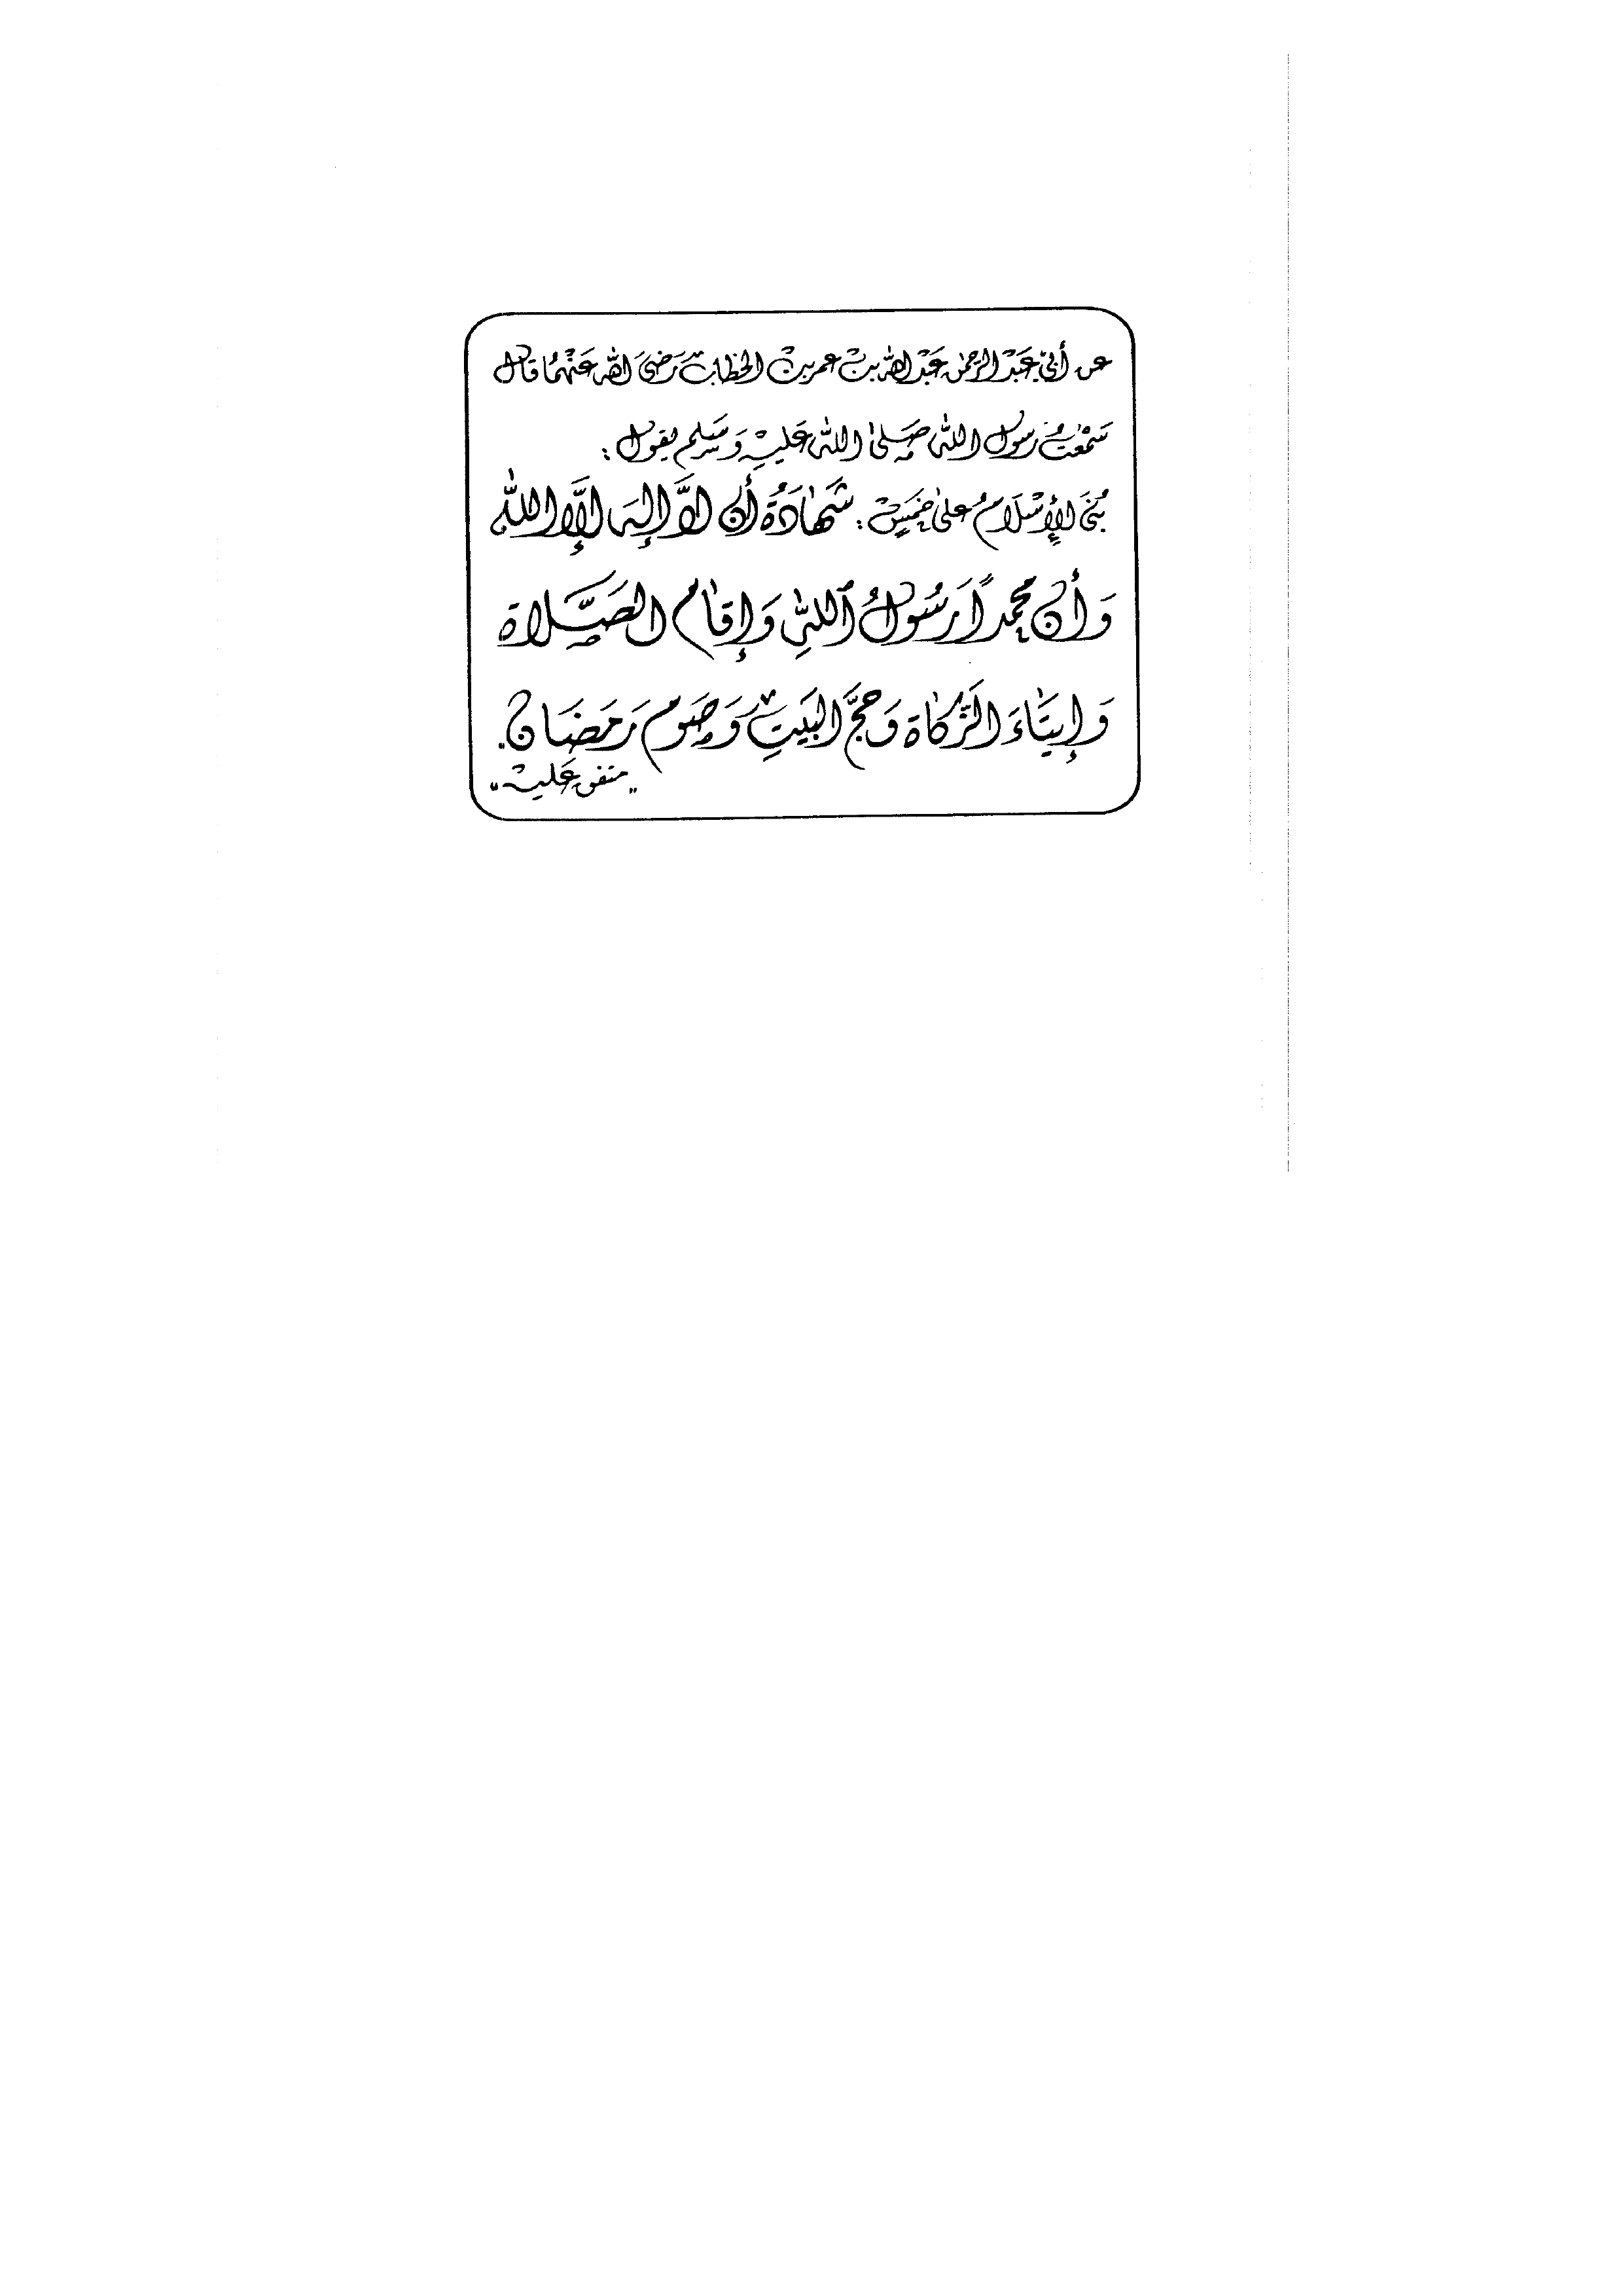 عن أبي عَبْد الرحمن عَبْد الله بنْ عمر بنْ الخطاب رَضيَ الله عَنْهمُا قال
سَمْعتُ رسول الله صَلى الله عَليْه وَسَلم يقول :
بُنيَ الإِسْلَامُ على خمَسٍْ : شَهادَةُ أن لاَّ إله إلَّا الله
وَأن محمداً رَسُولُ اللهِ وَإقام الصَّلاة
وَإيتَاءَ الزَّكاة وَحجَّ البَيتِ وَصَوم رَمَضَان .
" متفق عَليْه "